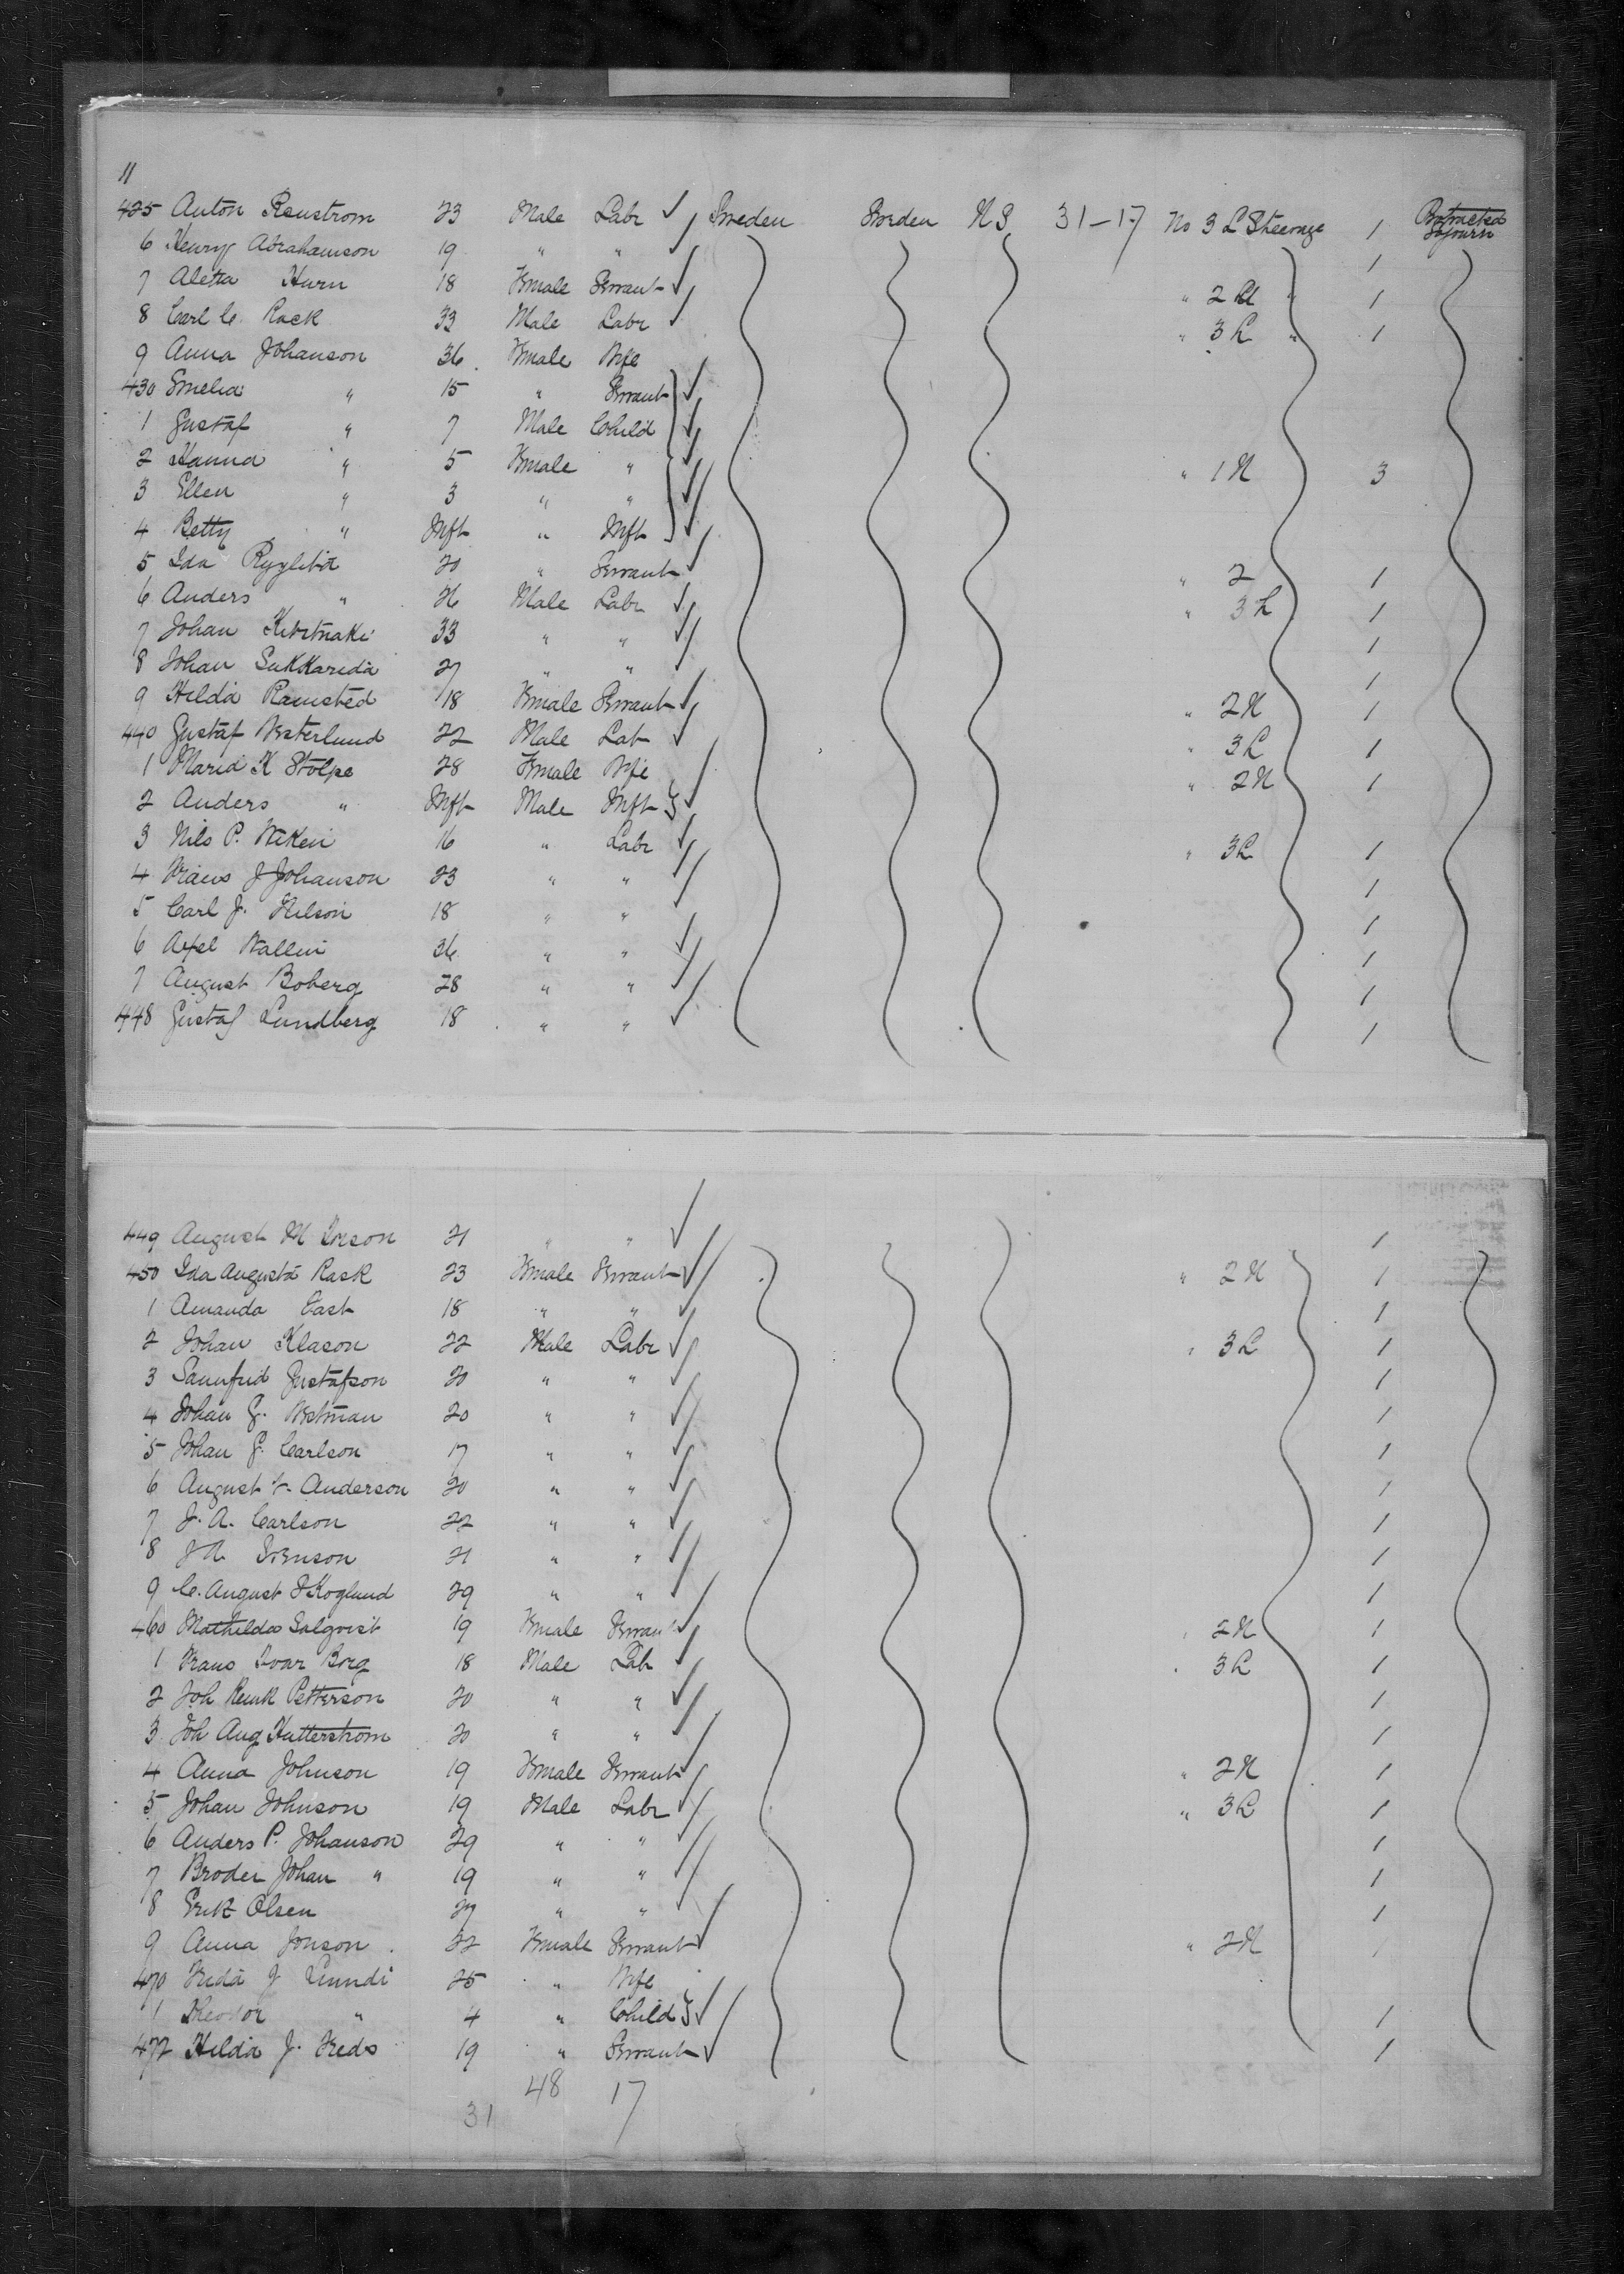 11
425 Anton Renstrom 23 Male Labr ✓ Sweden Sweden U S 31-17 No 3 L Steerage 1 Protracted Sojourn
6 Henry Abrahamson 19 " " ✓ 1
7 Aletta Hurn 18 Female Servant ✓ " 2 " 1
8 Carl C. Rack 33 Male Labr ✓ " 3 L " 1
9 Anna Johanson 36 Female Wife
430 Emelia " 15 " Servant ✓
1 Gustaf " 7 Male Child ✓
2 Hanna " 5 Female " ✓ " 1 H 3
3 Ellen " 3 " " ✓
4 Betty " Inft " Inft ✓
5 Ida 20 " Servant ✓ " 2 1
6 Anders " 26 Male Labr ✓ " 3 L 1
7 Johan 33 " " ✓ 1
8 Johan 27 " " ✓ 1
9 Hilda Ramsted 18 Female Servant ✓ " 2 H 1
440 Gustaf Westerlund 22 Male Lab ✓ " 3 L 1
1 Maria K Stolpe 28 Female Wife " 2 H 1
2 Anders " Inft Male Inft ✓
3 Nils P. Wiken 16 " Labr ✓ " 3 L 1
4 Frans J Johanson 23 " " ✓ 1
5 Carl J. Nilson 18 " " ✓ 1
6 Axel Wallin 36 " " ✓ 1
7 August Boberg 28 " " ✓ 1
448 Gustaf Lundberg 18 " " ✓ 1
449 August M 21 " " ✓ 1
450 Ida Augusta Rask 23 Female Servant ✓ " 2 H 1
1 Amanda East 18 " " ✓ 1
2 Johan Klason 22 Male Labr ✓ " 3 L 1
3 Sannfrid Gustafson 20 " " ✓ 1
4 Johan G. Westman 20 " " ✓ 1
5 Johan G. Carlson 17 " " ✓ 1
6 August F. Anderson 20 " " ✓ 1
7 J. A. Carlson 22 " " ✓ 1
8 J A Svenson 21 " " ✓ 1
9 C. August Skoglund 29 " " ✓ 1
460 Mathilda Salqvist 19 Female Servan ✓ " 2 H 1
1 Frans Ivar Borg 18 Male Lab ✓ " 3 L 1
2 Joh Henk Petterson 20 " " ✓ 1
3 Joh Aug Hutterstrom 20 " " ✓ 1
4 Anna Johnson 19 Female Servant ✓ " 2 H 1
5 Johan Johnson 19 Male Labr ✓ " 3 L 1
6 Anders P. Johanson 29 " " ✓ 1
7 Broder Johan " 19 " " ✓ 1
8 Erik Olsen 27 " " ✓ 1
9 Anna Jonson 22 Female Servant ✓ " 2 H 1
470 Frida J 25 " Wife
1 Theodor " 4 " Child ✓ 1
472 Hilda J. Freds 19 " Servant ✓ 1
48 17
31